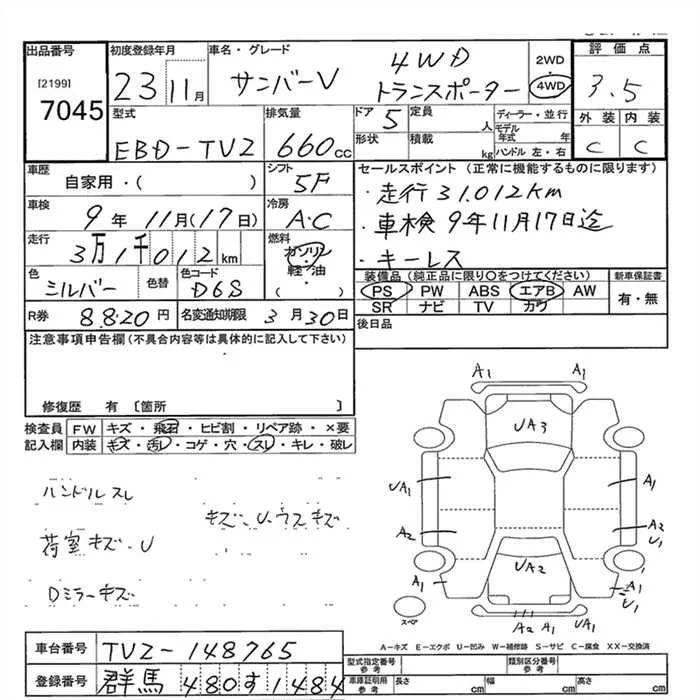 出品番号
[2199]
7045
初度登録年月
23 11月
車名・グレード
サンバーV 4WD
トランスポーター
2WD
・
4WD
評価点
3.5
外装 内装
C C
型式
EBD-TV2
排気量
660cc
ドア 5
形状
定員 人
積載 kg
ディーラー・並行
モデル年式 年
ハンドル 左・右
車歴
自家用・( )
シフト
5F
車検
9年11月(17日)
冷房
A・C
走行
3万1千012km
燃料
ガソリン
・
軽油
( )
色
シルバー
色替
色コード
D6S
R券 8820円
名変通知期限 3月30日
セールスポイント(正常に機能するものに限ります)
・走行31.012km
・車検9年11月17日迄
・キーレス
装備品(純正品に限り○をつけてください)
PS PW ABS エアB AW
SR ナビ TV カワ
新車保証書
有・無
後日品
注意事項申告欄(不具合内容等は具体的に記入して下さい)
修復歴 有〔箇所 〕
検査員記入欄
FW キズ・飛石・ヒビ割・リペア跡・×要
内装 キズ・汚レ・コゲ・穴・スレ・キレ・破レ
ハンドルスレ
キズ・U・ウスキズ
荷室キズ・U
Dミラーキズ
A1 A1
UA3
UA1 A1
A2 A2
U1
UA2
A1 A1
U1
スペア
A2 A1
A-キズ E-エクボ U-凹み W-補修跡 S-サビ C-腐食 XX-交換済
車台番号 TV2-148765
登録番号 群馬480す1484
型式指定番号
参考
類別区分番号
参考
車庫証明用
参考
長さ cm
幅 cm
高さ cm